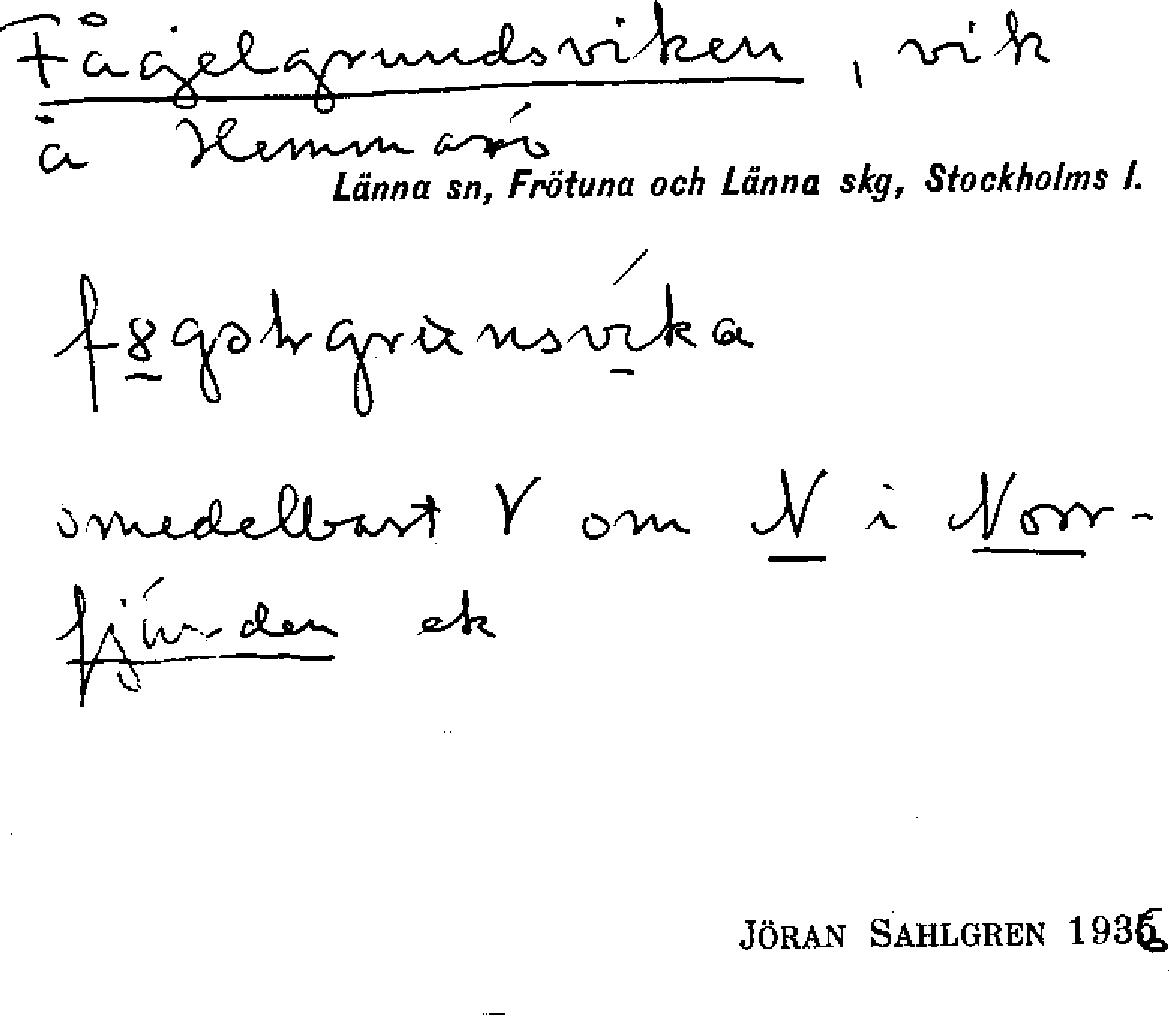 Fågelgrundsviken, vik
å Hemmarö
Länna sn, Frötuna och Länna skg, Stockholms l.
omedelbart V om N i Norr-
fjärden ek
JÖRAN SAHLGREN 1936